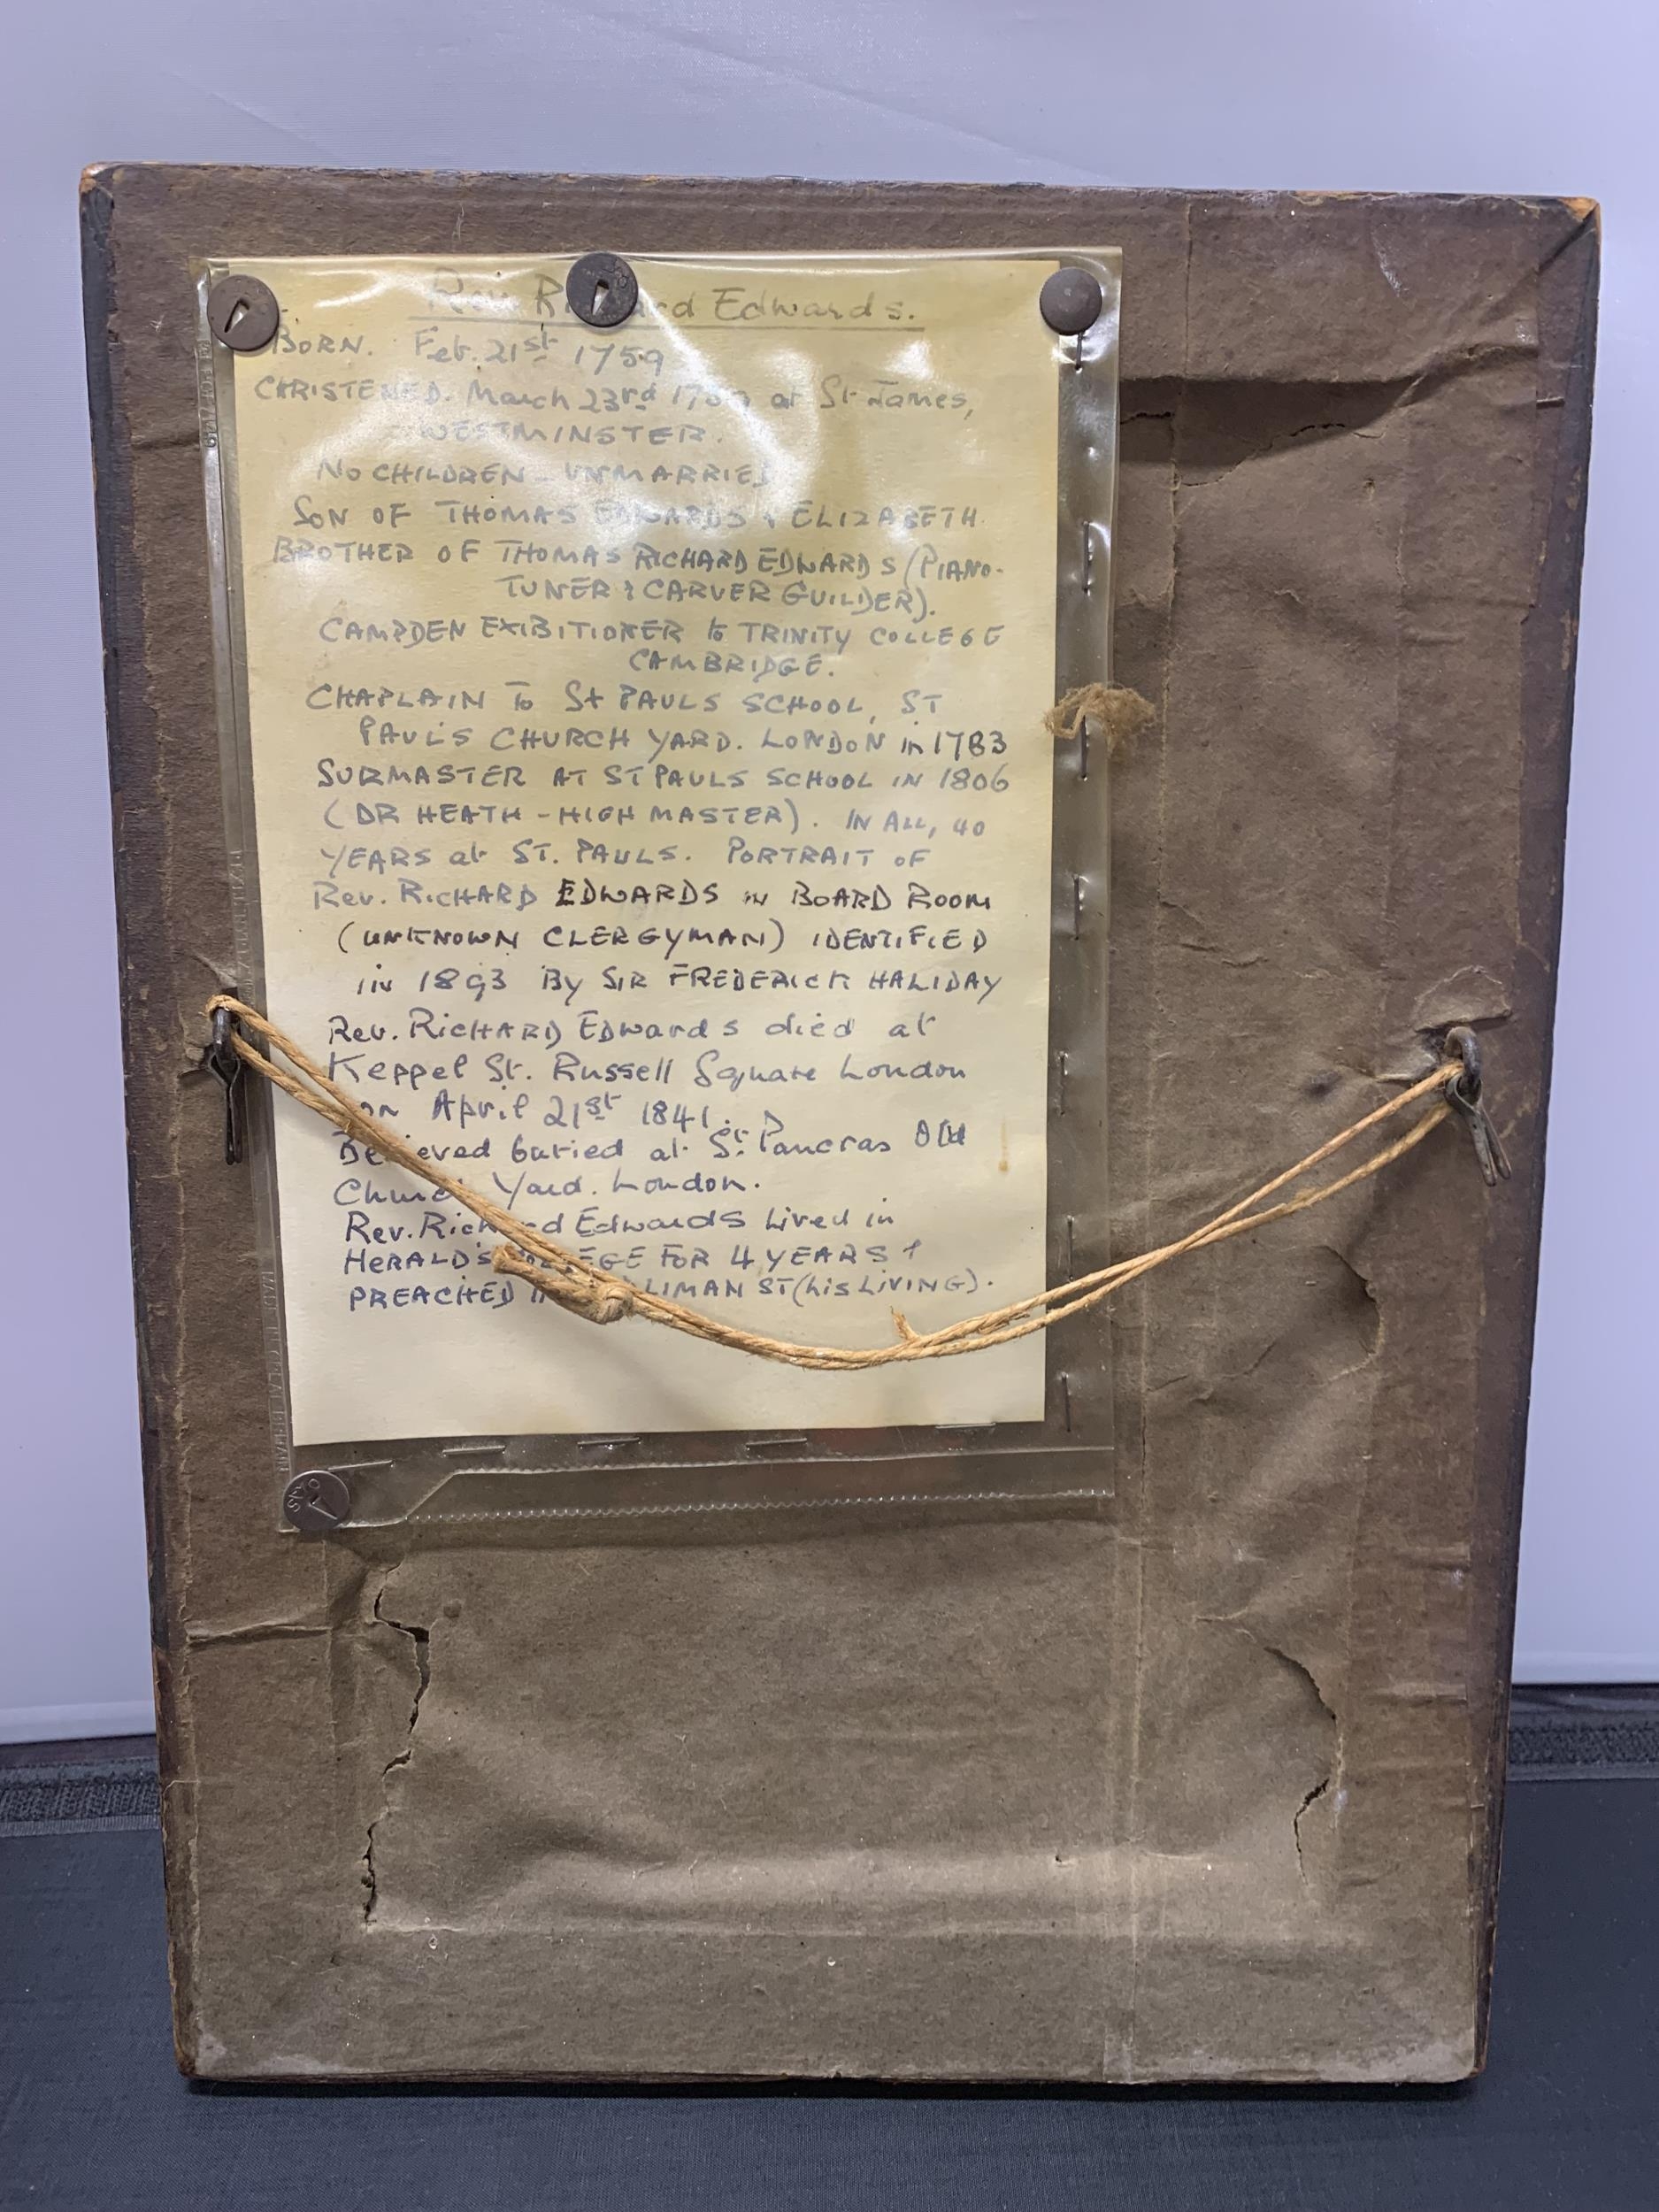 Rev Richard Edwards.
BORN. Feb. 21st 1759
CHRISTENED. March 23rd at St James,
WESTMINSTER.
NO CHILDREN - UNMARRIED
SON OF THOMAS EDWARDS & ELIZABETH
BROTHER OF THOMAS RICHARD EDWARDS (PIANO-
TUNER & CARVER GUILDER).
CAMPDEN EXIBITIONER to TRINITY COLLEGE
CAMBRIDGE.
CHAPLAIN To St PAULS SCHOOL, ST
PAUL'S CHURCH YARD. LONDON in 1783
SURMASTER AT ST PAULS SCHOOL IN 1806
(DR HEATH - HIGH MASTER). IN ALL, 40
YEARS at ST. PAULS. PORTRAIT OF
Rev. RICHARD EDWARDS IN BOARD ROOM
(UNKNOWN CLERGYMAN) IDENTIFIED
in 1893 By SIR FREDERICK HALIDAY
Rev. RICHARD Edwards died at
Keppel St. Russell Square London
on April 21st 1841.
Believed buried at St. Pancras Old
Church Yard. London.
Rev. Richard Edwards Lived in
HERALD'S COLLEGE FOR 4 YEARS &
PREACHED ST (his LIVING).